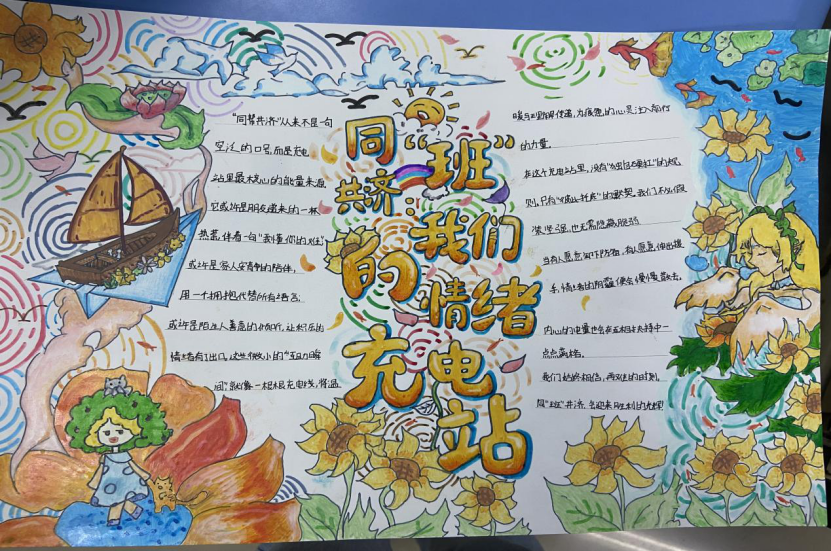 同“班”
共济：
我们
的
情绪
充电
站
“同帮共济”从来不是一句
空泛的口号,而是充电
站里最核心的能量来源.
它或许是朋友递来的一杯
热茶,伴着一句“我懂你的
或许是家人安静的陪伴,
用一个拥抱代替所有语言;
或许是陌生人善意的倾听,让积压的
情绪有了出口.这些微小的“互助瞬
间”就像一根根充电线,将温
暖与理解传递,为疲惫的心灵注入前行
的力量.
在这个充电站里,没有“独自硬扛”的规
则,只有“彼此托举”的默契.我们不必假
装坚强,也无需隐藏脆弱
当有人愿意卸下防备,有人愿意伸出援
手,情绪的阴霾便会慢慢散去.
内心的电量也会在互相扶持中一
点点满格.
我们始终相信,再难的时刻
同“班”共济,会迎来胜利的光辉!